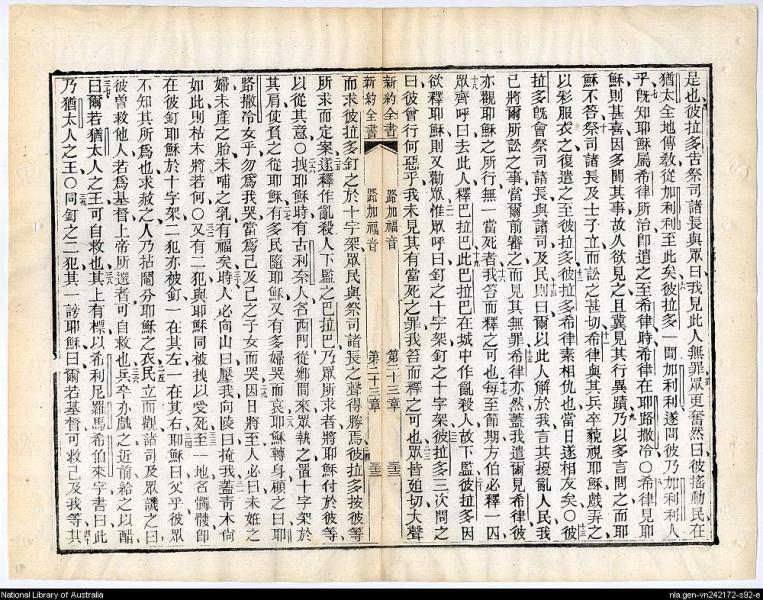 是也彼拉多告祭司諸長與眾曰我見此人無罪眾更奮然曰彼搖動民在
猶太全地傳教從加利利至此矣彼拉多一聞加利利遂問彼乃加利利人
乎既知耶穌屬希律所治卽遣之至希律時希律在耶路撒冷〇希律見耶
穌則甚喜因多聞其事故久欲見之且冀見其行異蹟乃以多言問之而耶
穌不答祭司諸長及士子立而訟之甚切希律與其兵卒藐視耶穌戲弄之
以彩服衣之復遣之至彼拉多彼拉多希律素相仇也當日遂相友矣〇彼
拉多旣會祭司諸長與諸司及民則曰爾以此人解於我言其擾亂人民我
已將爾所訟之事當爾前審之而見其無罪希律亦然蓋我遣爾見希律彼
亦觀耶穌之所行無一當死者我笞而釋之可也每至節期方伯必釋一囚
眾齊呼曰去此人釋巴拉巴此巴拉巴在城中作亂殺人故下監彼拉多因
欲釋耶穌則又勸眾惟眾呼曰釘之十字架釘之十字架彼拉多三次問之
曰彼曾行何惡乎我未見其有當死之罪我笞而釋之可也眾皆廹切大聲
新約全書 路加福音 第二十三章
新約全書 路加福音 第二十三章
而求彼拉多釘之於十字架眾民與祭司諸長之聲得勝焉彼拉多按彼等
所求而定案遂釋作亂殺人下監之巴拉巴乃眾所求者將耶穌付於彼等
以從其意〇拽耶穌時有古利奈人名西門從鄉間來眾執之置十字架於
其肩使負之從耶穌有多民隨耶穌又有多婦哭而哀耶穌轉身顧之曰耶
路撒冷女乎勿爲我哭當爲己及己之子女而哭因日將至人必曰未姙之
婦未產之胎未哺之乳有福矣時人必向山曰壓我向陵曰掩我蓋靑木尙
如此則枯木將若何〇又有二犯與耶穌同被拽以受死至一地名髑髏卽
在彼釘耶穌於十字架二犯亦被釘一在其左一在其右耶穌曰父乎彼眾
不知其所爲也求赦之人乃拈鬮分耶穌之衣民立而觀諸司及眾譏之曰
彼曾救他人若爲基督上帝所選者可自救也兵卒亦戲之近前給之以醋
曰爾若猶太人之王可自救也其上有標以希利尼羅馬希伯來字書曰此
乃猶太人之王〇同釘之二犯其一謗耶穌曰爾若基督可救己及我等其
National Library of Australia
nla.gen-vn242172-s92-e